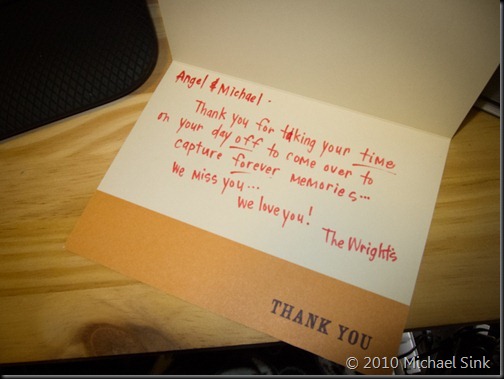 Angel & Michael.
Thank you for taking your time
on your day off to come over to
capture forever memories...
We miss you...
We love you!
The Wright's
THANK YOU
© 2010 Michael Sink